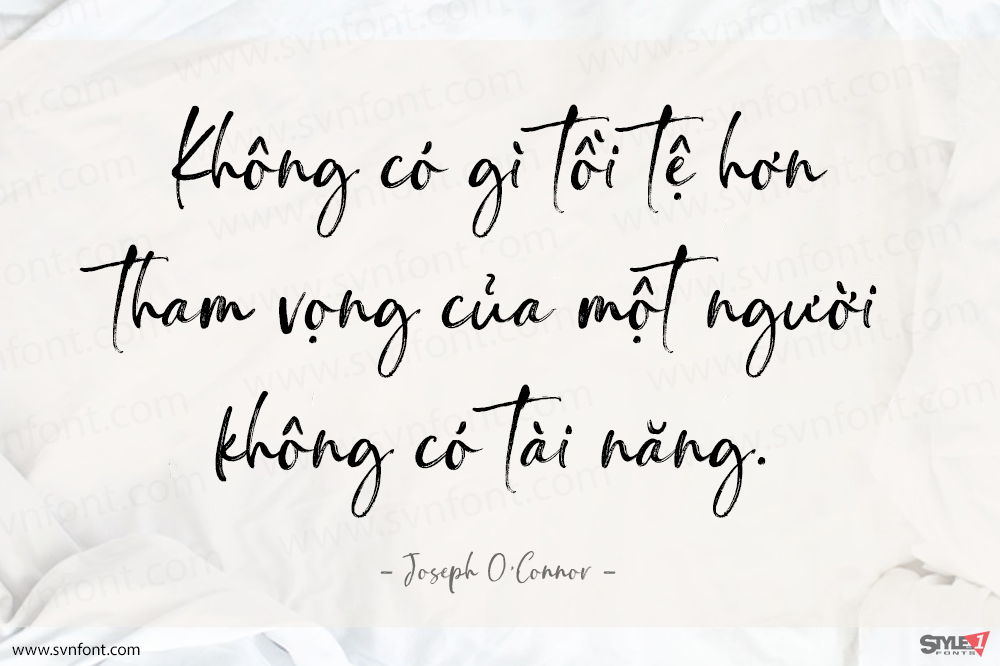 Không có gì tồi tệ hơn
tham vọng của một người
không có tài năng.
- Joseph O'Connor -
www.svnfont.com
STYLE 1
FONTS